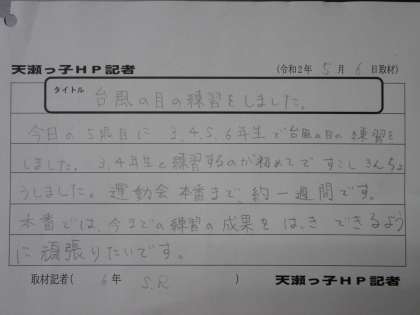 天瀬っ子HP記者
(令和2年 5月 6日取材)
タイトル
台風の目の練習をしました。
今日の5限目に 3.4.5.6年生で台風の目の練習を
しました。3.4年生と練習するのが初めてですこしきんちょ
うしました。運動会本番まで約一週間です。
本番では、今までの練習の成果をはっきできるよう
に頑張りたいです。
取材記者( 6年 S.R )
天瀬っ子HP記者